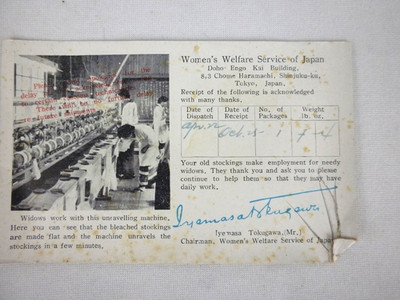 Women's Welfare Service of Japan
Doho Engo Kai Building,
8,3 Chome Haramachi, Shinjuku-ku,
Tokyo, Japan.
Receipt of the following is acknowledged
with many thanks.
Date of Dispatch
Date of Receipt
No. of Packages
Weight lb. oz.
Oct. 15
1
Your old stockings make employment for needy
widows. They thank you and ask you to please
continue to help them so that they may have
daily work.
Iyemasa Tokugawa
Iyemasa Tokugawa (Mr.)
Chairman, Women's Welfare Service of Japan
Widows work with this unravelling machine.
Here you can see that the bleached stockings
are made flat and the machine unravels the
stockings in a few minutes.